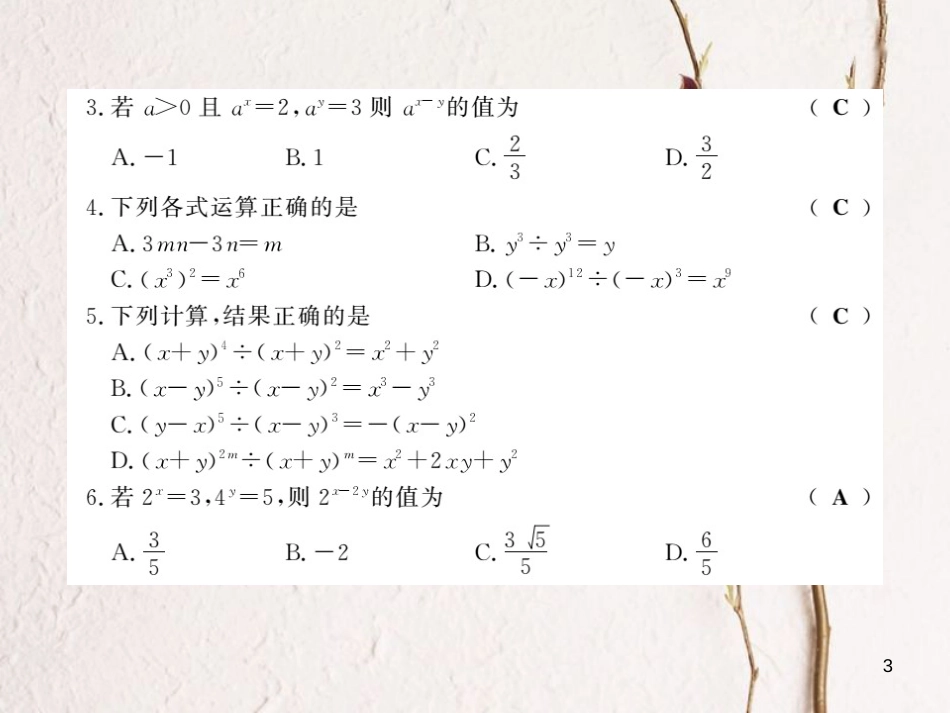 3. 若 a>0 且 aˣ=2,aʸ=3 则 aˣ⁻ʸ的值为 ( C )
A. −1 B. 1 C. 2/3 D. 3/2
4. 下列各式运算正确的是 ( C )
A. 3mn−3n=m B. y³÷y³=y
C. (x³)²=x⁶ D. (−x)¹²÷(−x)³=x⁹
5. 下列计算,结果正确的是 ( C )
A. (x+y)⁴÷(x+y)²=x²+y²
B. (x−y)⁵÷(x−y)²=x³−y³
C. (y−x)⁵÷(x−y)³=−(x−y)²
D. (x+y)²ᵐ÷(x+y)ᵐ=x²+2xy+y²
6. 若 2ˣ=3,4ʸ=5,则 2ˣ⁻²ʸ的值为 ( A )
A. 3/5 B. −2 C. 3√5/5 D. 6/5
3